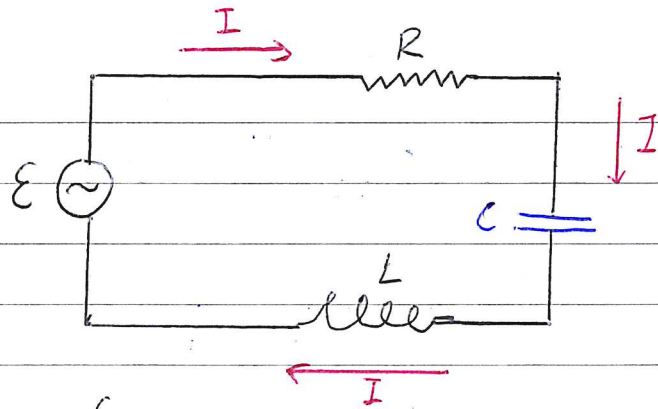 I
R
I
ε
C
L
I